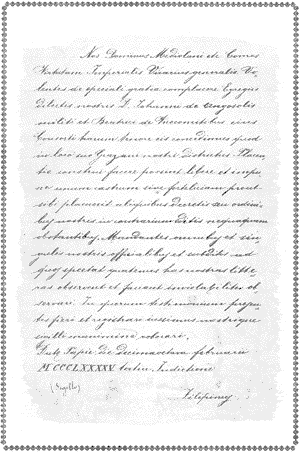 Nos Dominus Mediolani etc Comes
Virtutum Imperialis Vicarius generalis Vo-
lentes de speciali gratia complacere Egregiis
dilectis nostris D. Johanni de Angosolis
militi et Beatrici de Vicecomitibus eius
Consorti harum tenore eis concedimus quod
in loco sui Grazani nostri districtus Placen
tie construi facere possint libere et impu-
ne unum castrum sive fortilicium prout
sibi placuerit aliquibus decretis seu ordini
bus nostris in contrarium editis nequaquam
obstantibus. Mandantes omnibus et sin
gulis nostris officialibus et subditis ad
quos spectat quatenus has nostras litte
ras observent et faciant inviolabiliter ob
servari. In quorum testimonium presen
tes fieri et registrari iussimus nostrique
sigilli munimine roborari.
Dat. Papie die decimoctavo februarii
MCCCLXXXXV tertia Indictione
(Sigillo)